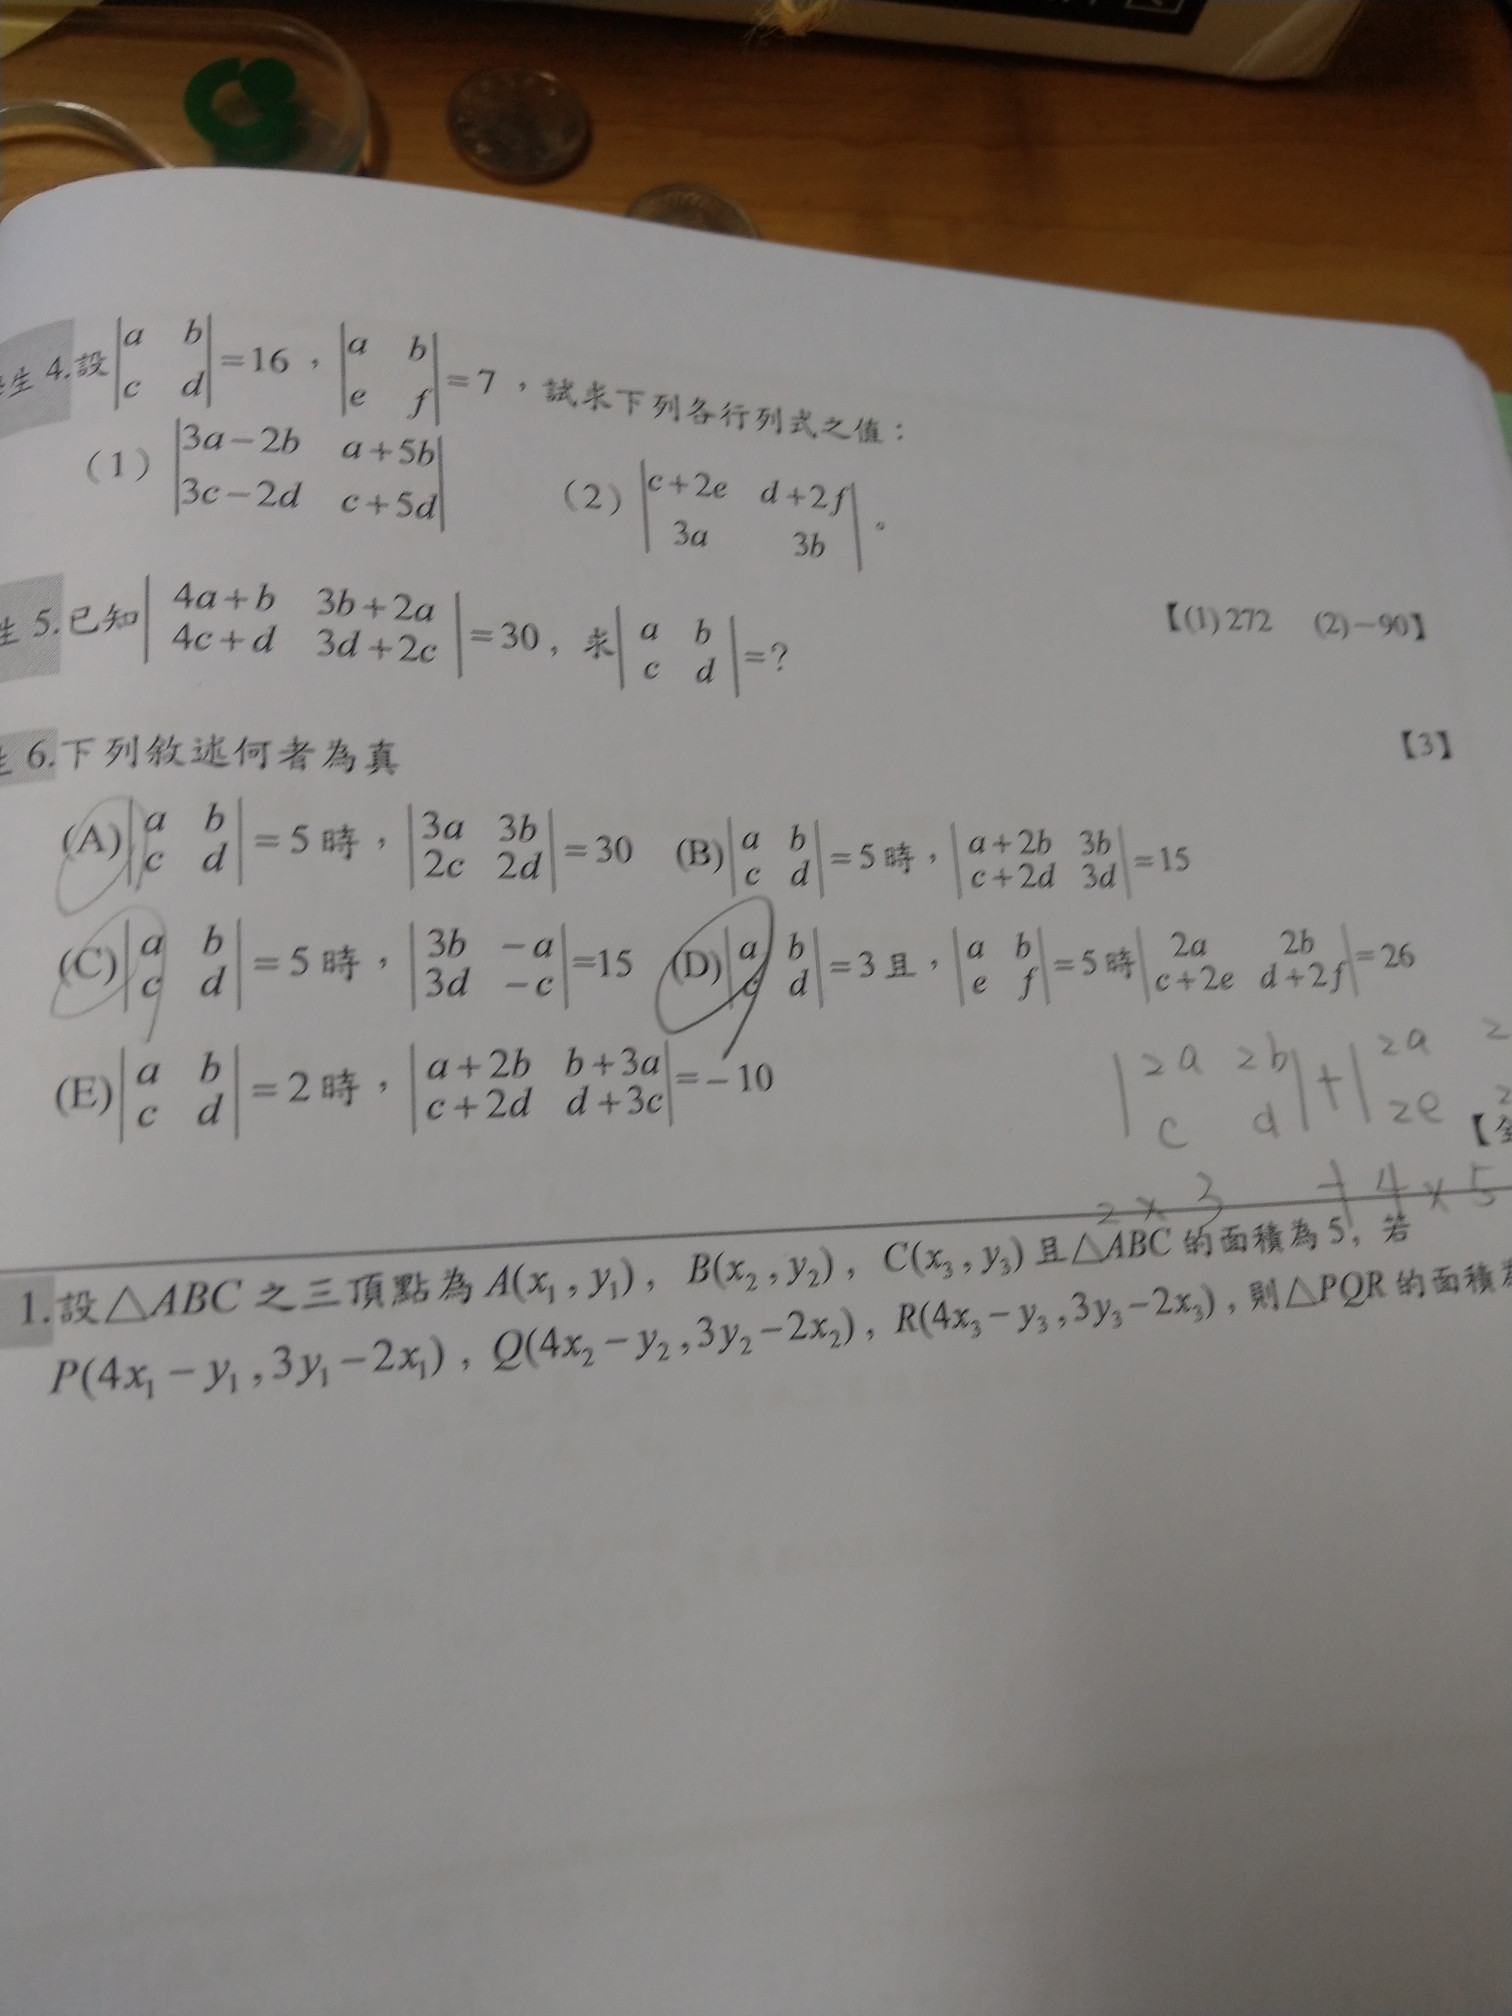 生 4.設|a b; c d|=16，|a b; e f|=7，試求下列各行列式之值：
(1) |3a－2b a＋5b; 3c－2d c＋5d| (2) |c＋2e d＋2f; 3a 3b|。
【(1) 272 (2)－90】
生 5.已知|4a＋b 3b＋2a; 4c＋d 3d＋2c|=30，求|a b; c d|=?
【3】
6.下列敘述何者為真
(A)|a b; c d|=5時，|3a 3b; 2c 2d|=30 (B)|a b; c d|=5時，|a＋2b 3b; c＋2d 3d|=15
(C)|a b; c d|=5時，|3b －a; 3d －c|=15 (D)|a b; c d|=3且，|a b; e f|=5時|2a 2b; c＋2e d＋2f|=26
(E)|a b; c d|=2時，|a＋2b b＋3a; c＋2d d＋3c|=－10
|2a 2b; c d|+|2a 2; 2e 2
【全
2×3 +4×5
1.設△ABC之三頂點為A(x₁,y₁)，B(x₂,y₂)，C(x₃,y₃)且△ABC的面積為5，若
P(4x₁－y₁,3y₁－2x₁)，Q(4x₂－y₂,3y₂－2x₂)，R(4x₃－y₃,3y₃－2x₃)，則△PQR的面積為